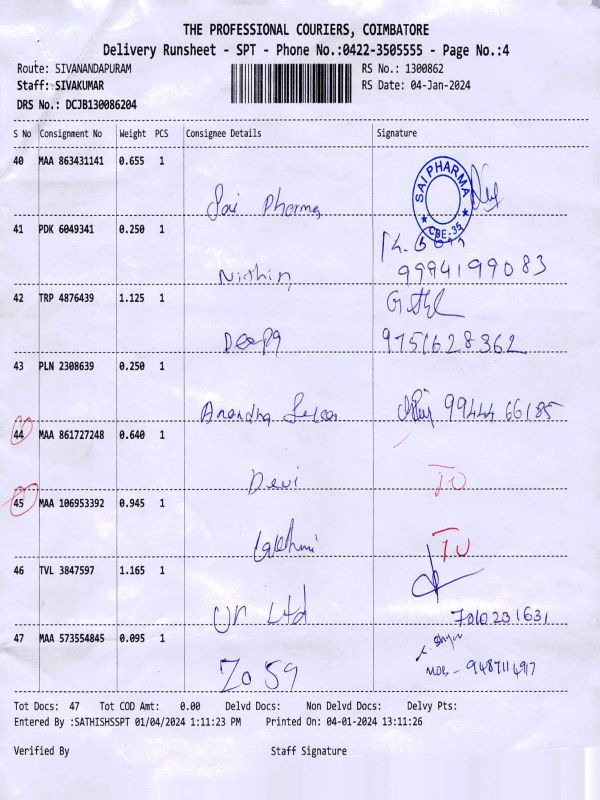 THE PROFESSIONAL COURIERS, COIMBATORE
Delivery Runsheet - SPT - Phone No.:0422-3505555 - Page No.:4
Route: SIVANANDAPURAM RS No.: 1300862
Staff: SIVAKUMAR RS Date: 04-Jan-2024
DRS No.: DCJB130086204
S No Consignment No Weight PCS Consignee Details Signature
40 MAA 863431141 0.655 1
Sai Pharma SAI PHARMA CBE-35
41 PDK 6049341 0.250 1
Nithin 9994199083
42 TRP 4876439 1.125 1
Deepa 9751628362
43 PLN 2308639 0.250 1
Anandha 99444 66185
44 MAA 861727248 0.640 1
Devi TU
45 MAA 106953392 0.945 1
Lakshmi TU
46 TVL 3847597 1.165 1
Ltd 7010231631
47 MAA 573554845 0.095 1
MOB - 9487114917
Tot Docs: 47 Tot COD Amt: 0.00 Delvd Docs: Non Delvd Docs: Delvy Pts:
Entered By :SATHISHSSPT 01/04/2024 1:11:23 PM Printed On: 04-01-2024 13:11:26
Verified By Staff Signature